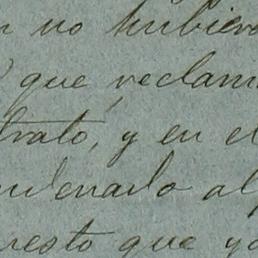 no hubiera
que reclam
trato, y en el
ndenado al
uesto que ya